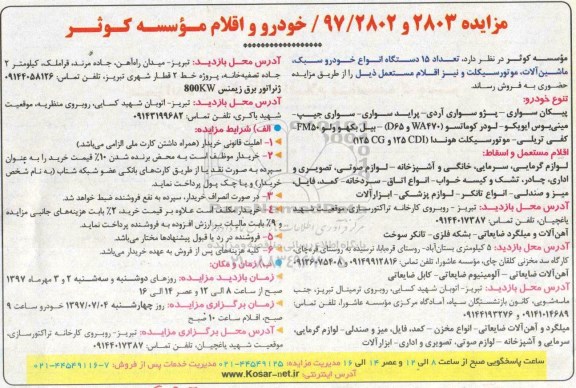 مزایده ۲۸۰۳ و ۹۷/۲۸۰۲ / خودرو و اقلام مؤسسه کوثر
مؤسسه کوثر در نظر دارد، تعداد ۱۵ دستگاه انواع خودرو سبک،
ماشین‌آلات، موتورسیکلت و نیز اقلام مستعمل ذیل را از طریق مزایده
حضوری به فروش رساند.
تنوع خودرو:
پیکان سواری - پژو سواری آردی- پراید سواری- سواری جیپ-
مینی‌بوس ایویکو- لودر کوماتسو (WA۴۷۰ و D۶۵) - بیل بکهو ولو FM۵۰
کفی تریلی- موتورسیکلت هوندا (۱۲۵ CDI و ۱۲۵ CG)
اقلام مستعمل و اسقاط:
لوازم گرمایی، سرمایی، خانگی و آشپزخانه - لوازم صوتی، تصویری و
اداری، چادر، تشک و کیسه خواب - انواع اتاق - سردخانه - کمد، فایل،
میز و صندلی - انواع تانکر - لوازم پزشکی - ابزارآلات
آدرس محل بازدید: تبریز - روبروی کارخانه تراکتورسازی، موقعیت شهید
یاغچیان، تلفن تماس: ۰۹۱۴۴۰۱۷۳۸۷
آهن‌آلات و میلگرد ضایعاتی - بشکه فلزی - تانکر سوخت
آدرس محل بازدید: ۵ کیلومتری بستان‌آباد - روستای
کارگاه سد مخزنی کلقان چای، مؤسسه عاشورا، تلفن تماس: ۰۹۱۴۹۹۱۲۸۱۶ -
آهن آلات ضایعاتی - آلومینیوم ضایعاتی - کابل ضایعاتی
آدرس محل بازدید: تبریز، اتوبان شهید کسایی، روبروی ترمینال تبریز، جنب
ماشه‌شویی، کانون بازنشستگان سپاه، آمادگاه مرکزی مؤسسه عاشورا، تلفن تماس:
۰۹۱۴۱۰۱۴۶۸۹ و ۰۹۱۴۴۱۹۳۲۷۶
میلگرد و آهن آلات ضایعاتی - انواع مخزن - کمد، فایل، میز و صندلی - لوازم گرمایی،
سرمایی و آشپزخانه - لوازم صوتی، تصویری و اداری - ابزارآلات
آدرس محل بازدید: تبریز- میدان راه‌آهن، جاده مرند، قراملک، کیلومتر ۲
جاده تصفیه‌خانه، پروژه خط ۲ قطار شهری تبریز، تلفن تماس: ۰۹۱۴۴۰۵۸۱۲۶
ژنراتور برق زیمنس 800KW
آدرس محل بازدید: تبریز- اتوبان شهید کسایی، روبروی منظریه، موقعیت
شهید باکری، تلفن تماس: ۰۹۱۴۳۱۹۹۶۸۲
الف) شرایط مزایده:
۱- اهلیت قانونی خریدار (همراه داشتن کارت ملی الزامی می‌باشد)
۲- خریدار موظف است به محض برنده شدن ۱۰٪ قیمت خرید را به عنوان
سپرده به صورت نقد یا از طریق کارت‌های بانکی عضو شبکه شتاب (به نام شخص
خریدار) و یا چک پول پرداخت نماید.
۳- در صورت انصراف خریدار، سپرده به نفع فروشنده ضبط خواهد شد.
۴- خریدار مکلف است علاوه بر قیمت خرید، ۲٪ بابت هزینه‌های جانبی مزایده
و ۹٪ بابت مالیات بر ارزش افزوده به فروشنده پرداخت نماید.
۵- فروشنده در رد یا قبول پیشنهادها مختار می‌باشد.
۶- کلیه هزینه‌های پس از فروش به عهده خریدار می‌باشد.
ب) زمان و مکان:
زمان بازدید مزایده: روزهای دوشنبه و سه‌شنبه ۲ و ۳ مهرماه ۱۳۹۷
صبح از ساعت ۸ الی ۱۲ و عصر ۱۴ الی ۱۶
زمان برگزاری مزایده: روز چهارشنبه ۱۳۹۷/۰۷/۰۴ خودرو ساعت ۹
صبح، اقلام ساعت ۱۰ صبح
آدرس محل برگزاری مزایده: تبریز- روبروی کارخانه تراکتورسازی،
موقعیت شهید یاغچیان، تلفن تماس: ۰۹۱۴۴۰۱۷۳۸۷
ساعت پاسخگویی صبح از ساعت ۸ الی ۱۲ و عصر ۱۴ الی ۱۶ مدیریت مزایده: ۴۴۵۴۹۱۲۵-۰۲۱ مدیریت خدمات پس از فروش: ۷-۴۴۵۴۹۱۱۶-۰۲۱
آدرس اینترنتی: www.Kosar-net.ir